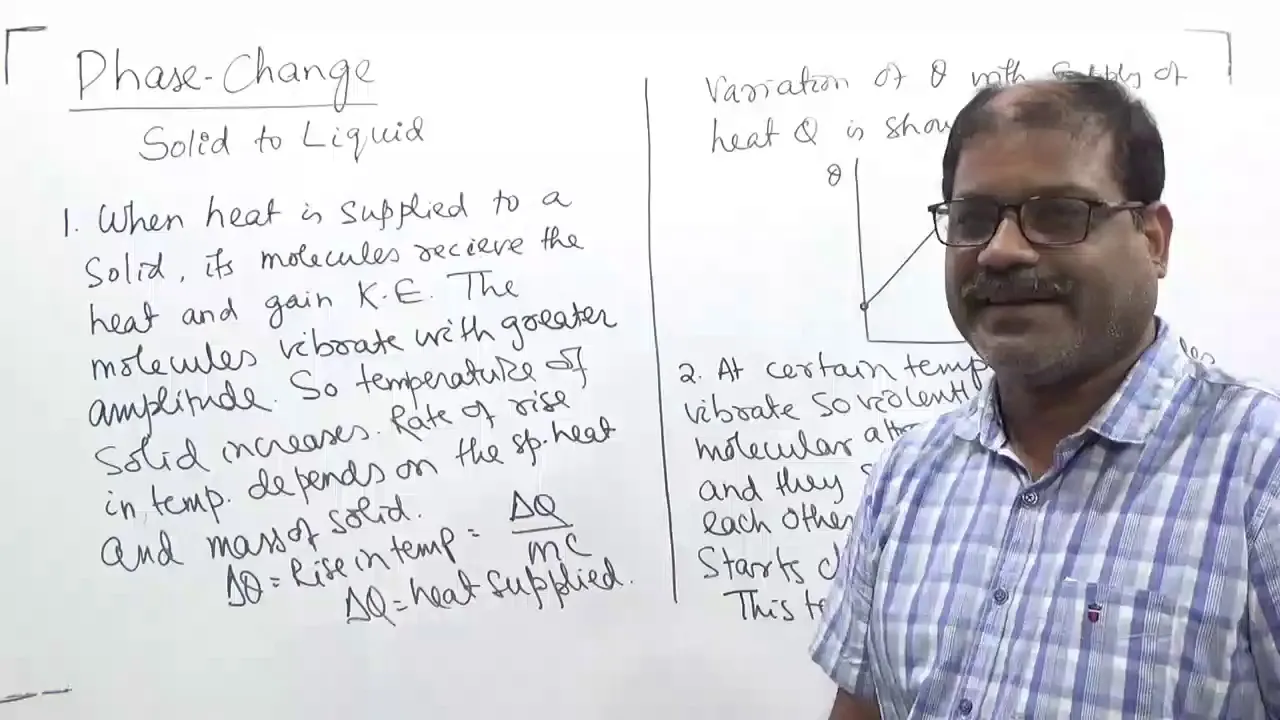 Phase-Change
Solid to Liquid
1. When heat is supplied to a
Solid, its molecules recieve the
heat and gain K.E. The
molecules vibrate with greater
amplitude. So temperature of
Solid increases. Rate of rise
in temp. depends on the sp. heat
and mass of solid.
Δθ = Rise in temp = ΔQ / mc
ΔQ = heat supplied.
Variation of θ with supply of
heat Q is
θ
2. At certain
vibrate so
molecular
and they
each other
Starts
This